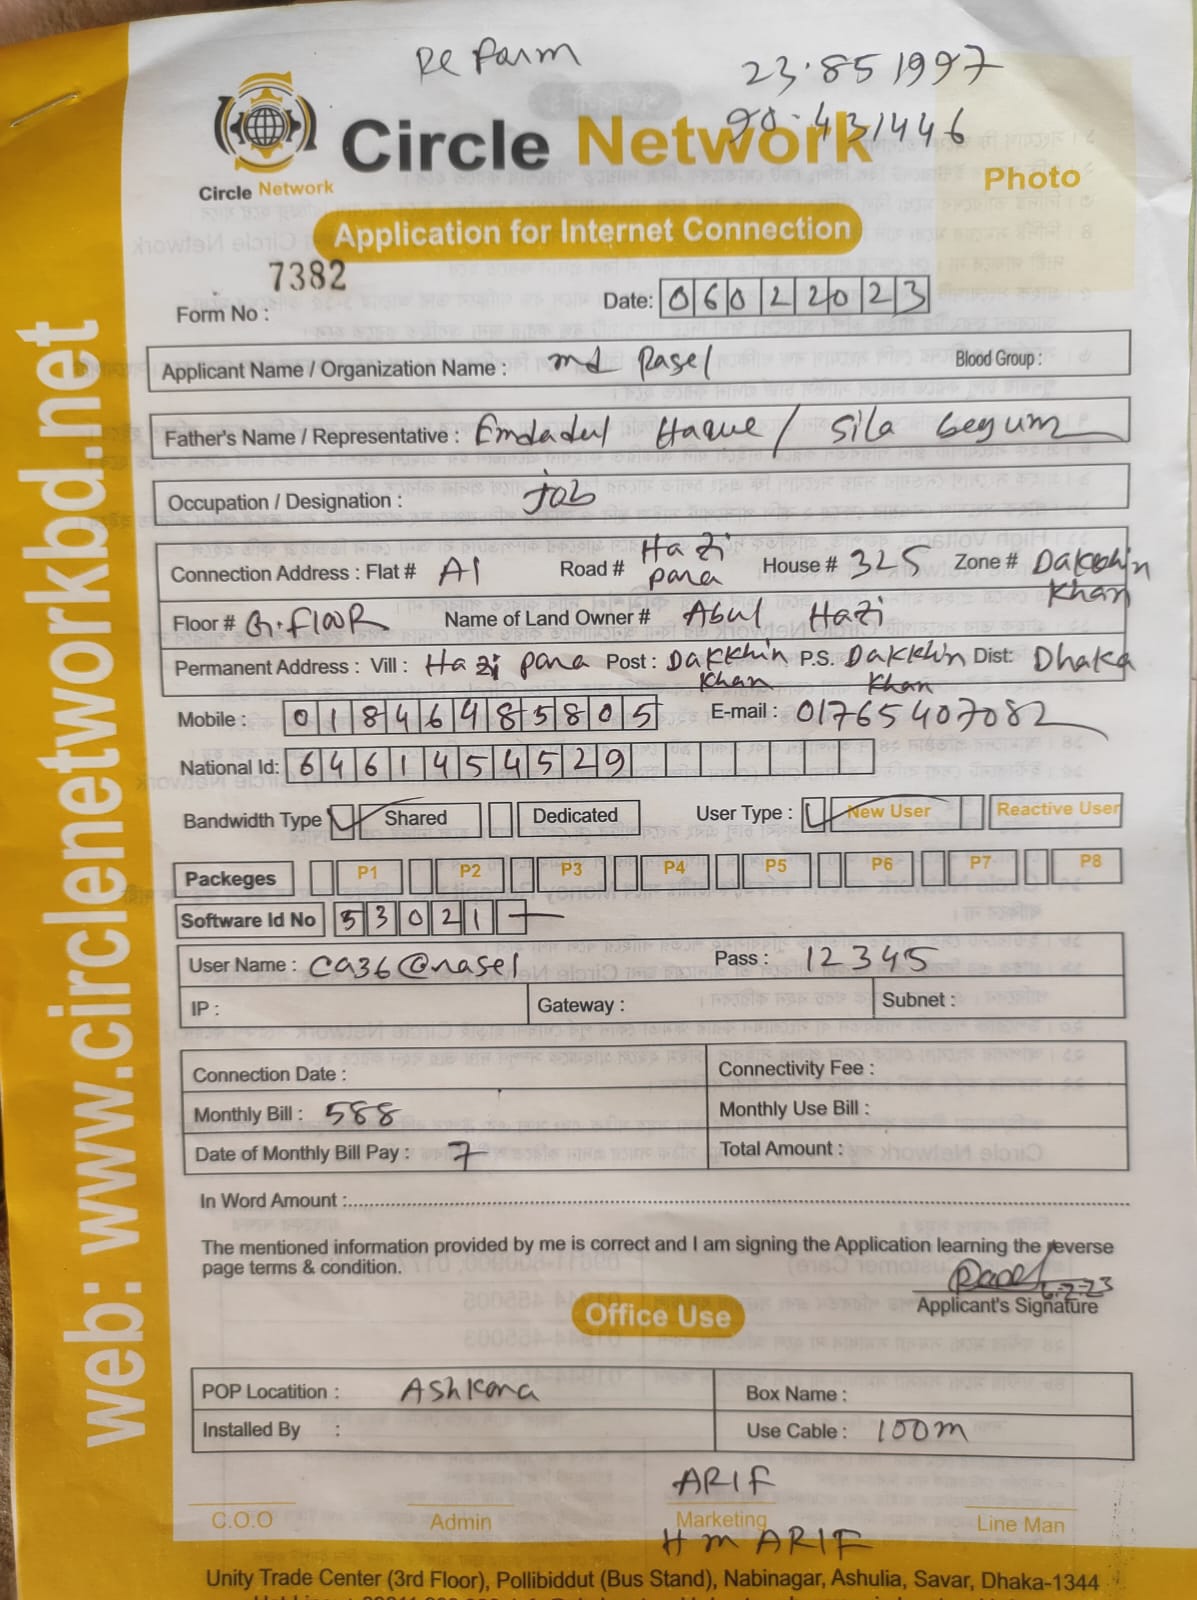 Re Farm
23.851997
90.431446
Circle Network
Circle Network
Photo
Application for Internet Connection
7382
Form No :
Date: 06022023
Applicant Name / Organization Name : md Rasel Blood Group :
Father's Name / Representative : Emdadul Haque / Sila begum
Occupation / Designation : Job
Connection Address : Flat # A1 Road # Hazi para House # 325 Zone # Dakkhin Khan
Floor # G.flooR Name of Land Owner # Abul Hazi
Permanent Address : Vill : Hazi para Post : Dakkhin Khan P.S. Dakkhin Khan Dist: Dhaka
Mobile : 01846485805 E-mail : 01765407082
National Id: 6461454529
Bandwidth Type Shared Dedicated User Type : New User Reactive User
Packeges P1 P2 P3 P4 P5 P6 P7 P8
Software Id No 53021
User Name : ca36@rasel Pass : 12345
IP : Gateway : Subnet :
Connection Date : Connectivity Fee :
Monthly Bill : 588 Monthly Use Bill :
Date of Monthly Bill Pay : 7 Total Amount :
In Word Amount :
The mentioned information provided by me is correct and I am signing the Application learning the reverse
page terms & condition.
Rasel
6-2-23
Applicant's Signature
Office Use
POP Locatition : Ashkona Box Name :
Installed By : Use Cable : 100m
ARIF
C.O.O Admin Marketing Line Man
H m ARIF
Unity Trade Center (3rd Floor), Pollibiddut (Bus Stand), Nabinagar, Ashulia, Savar, Dhaka-1344
web: www.circlenetworkbd.net